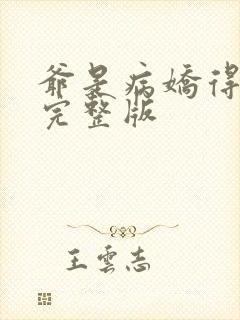 爺是病嬌得
完整版
王雲志